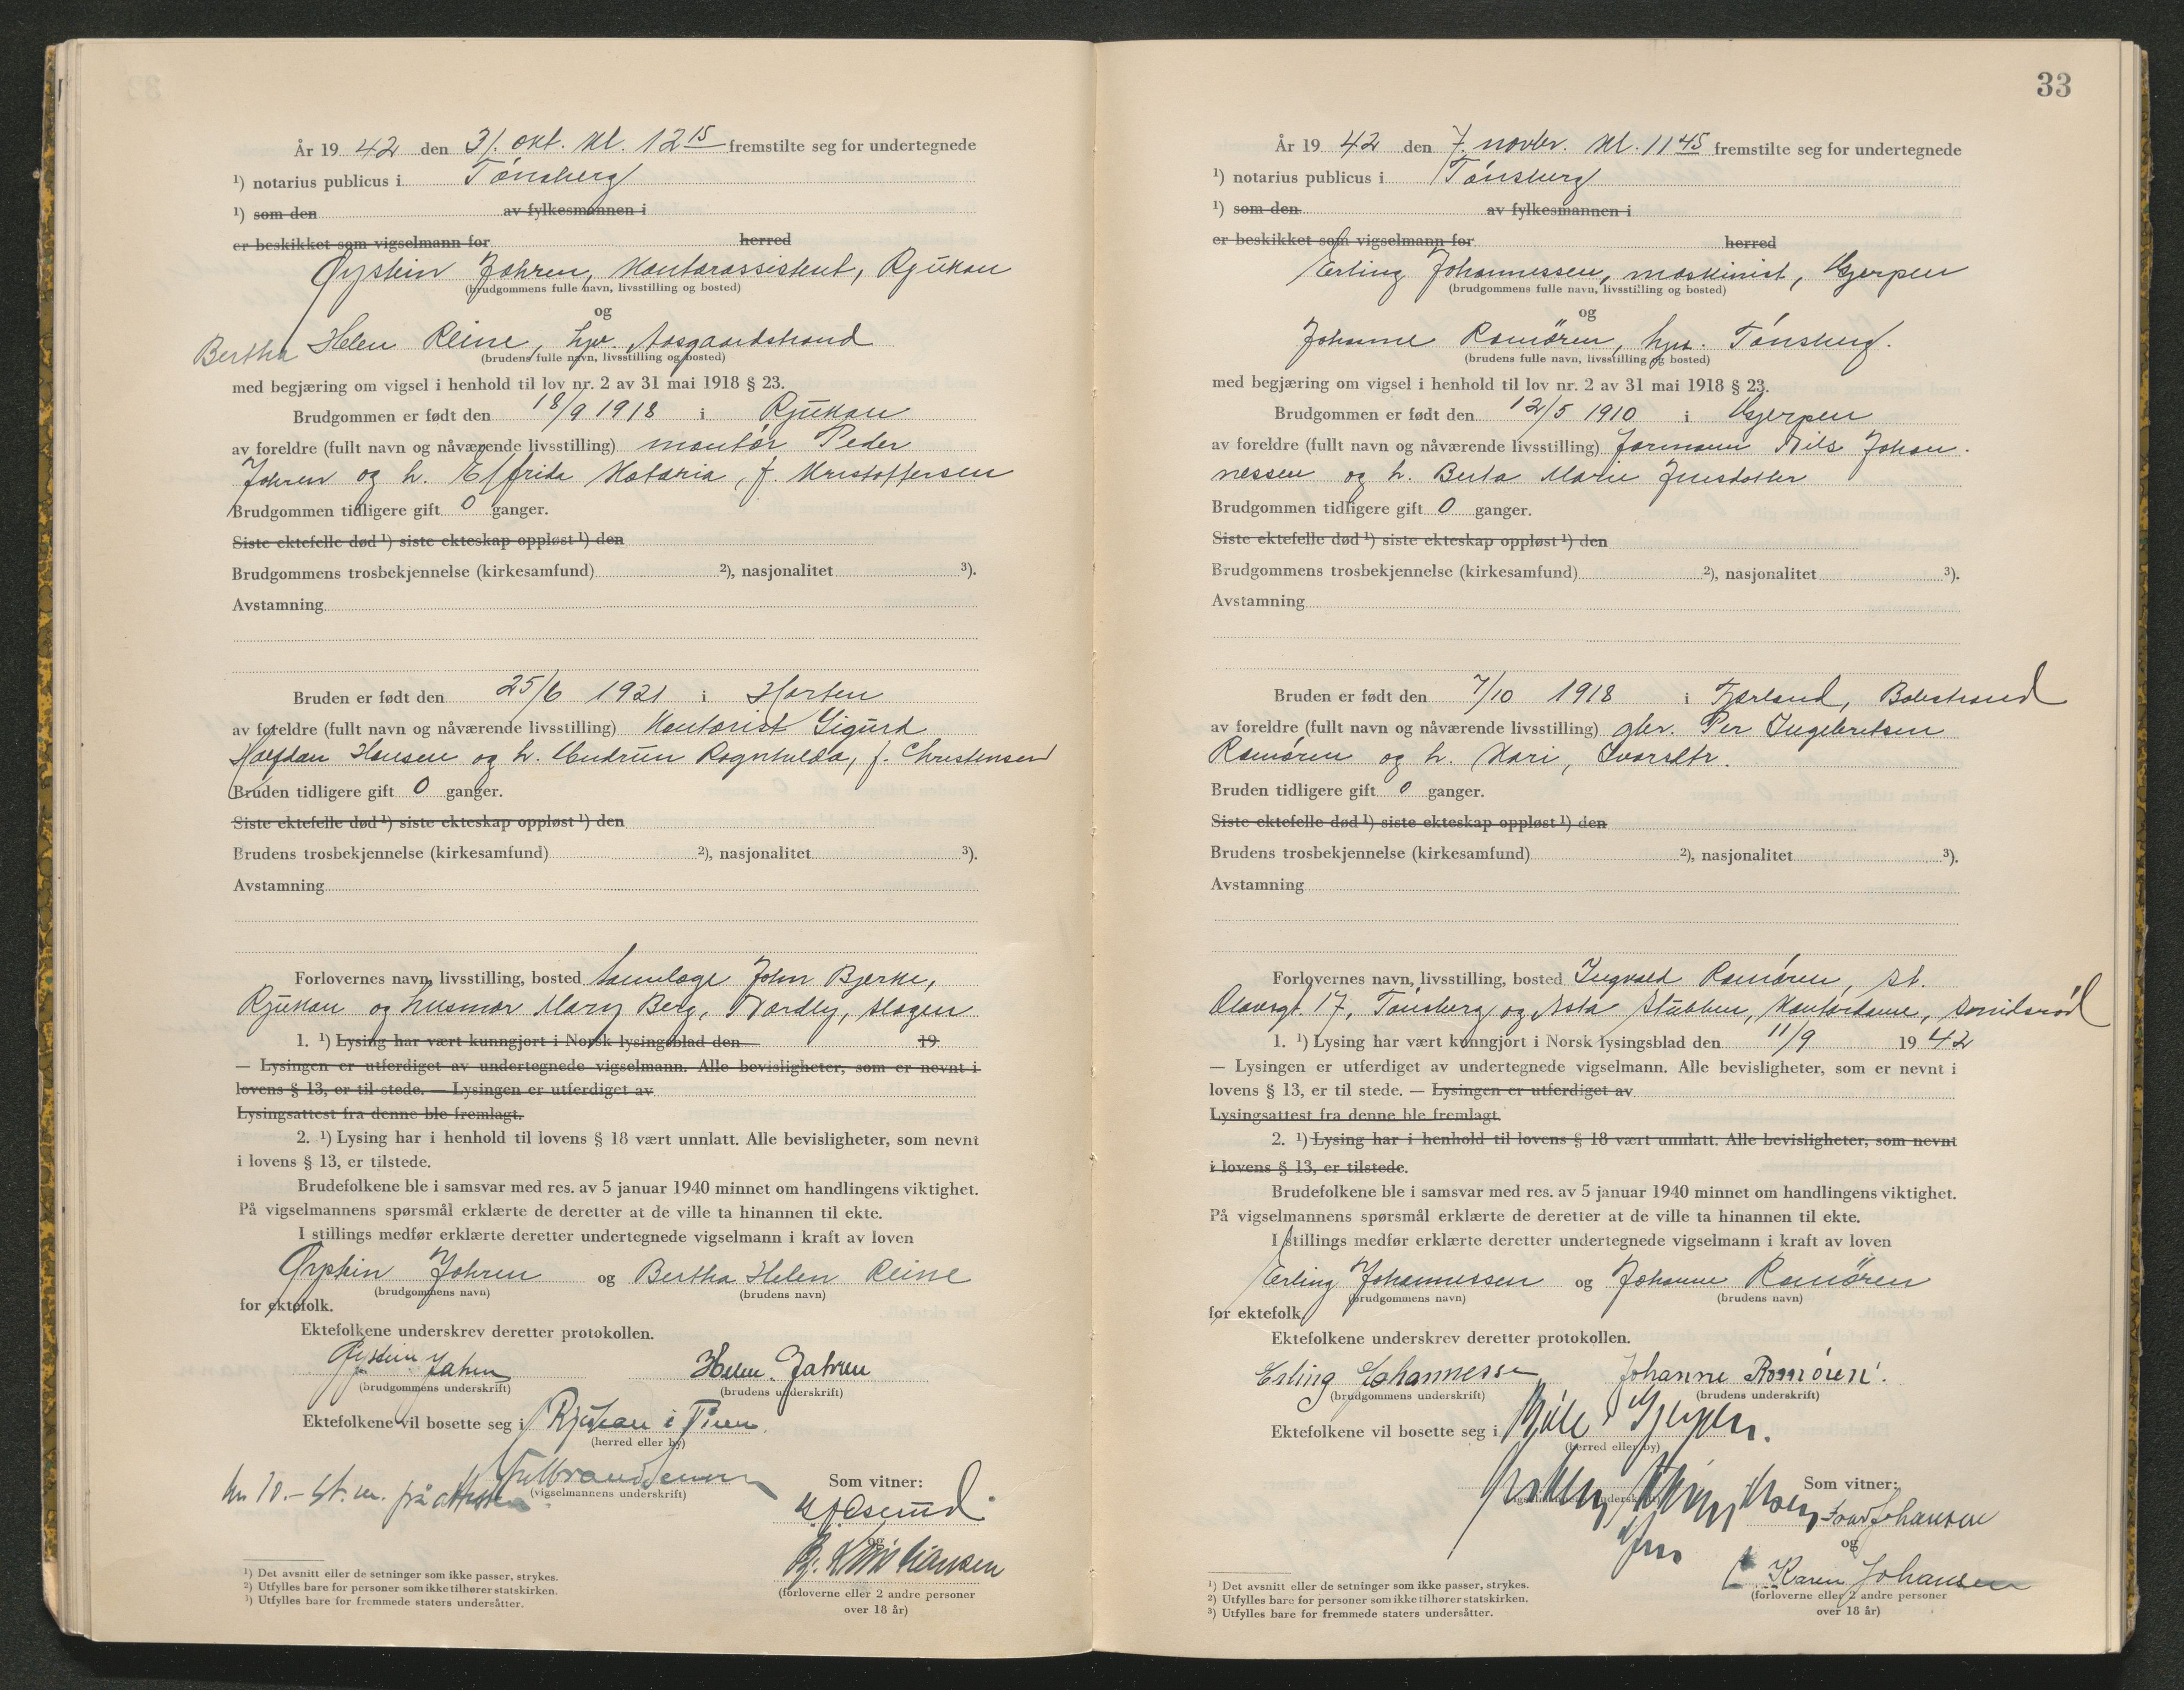 År 19 42 den 31. okt. kl. 12 15 fremstilte seg for undertegnede
¹) notarius publicus i Tønsberg
¹) som den av fylkesmannen i
er beskikket som vigselmann for herred
Øystein Jahren, kontorassistent, Rjukan
(brudgommens fulle navn, livsstilling og bosted)
og
Bertha Helen Reine, hjv. Aasgaardstrand
(brudens fulle navn, livsstilling og bosted)
med begjæring om vigsel i henhold til lov nr. 2 av 31 mai 1918 § 23.
Brudgommen er født den 18/9 1918 i Rjukan
av foreldre (fullt navn og nåværende livsstilling) montør Peder
Jahren og h. Elfrida Kataria, f. Kristoffersen
Brudgommen tidligere gift 0 ganger.
Siste ektefelle død ¹) siste ekteskap oppløst ¹) den
Brudgommens trosbekjennelse (kirkesamfund) ²), nasjonalitet ³).
Avstamning
Bruden er født den 25/6 1921 i Horten
av foreldre (fullt navn og nåværende livsstilling) kontorist Sigurd
Halfdan Hansen og h. Gudrun Ragnhilda, f. Christensen
Bruden tidligere gift 0 ganger.
Siste ektefelle død ¹) siste ekteskap oppløst ¹) den
Brudens trosbekjennelse (kirkesamfund) ²), nasjonalitet ³).
Avstamning
Forlovernes navn, livsstilling, bosted tannlæge John Bjerke,
Rjukan og husmor Mary Berg, Nordby, Slagen
1. ¹) Lysing har vært kunngjort i Norsk lysingsblad den 19
— Lysingen er utferdiget av undertegnede vigselmann. Alle bevisligheter, som er nevnt i
lovens § 13, er til stede. — Lysingen er utferdiget av
Lysingsattest fra denne ble fremlagt.
2. ¹) Lysing har i henhold til lovens § 18 vært unnlatt. Alle bevisligheter, som nevnt
i lovens § 13, er tilstede.
Brudefolkene ble i samsvar med res. av 5 januar 1940 minnet om handlingens viktighet.
På vigselmannens spørsmål erklærte de deretter at de ville ta hinannen til ekte.
I stillings medfør erklærte deretter undertegnede vigselmann i kraft av loven
Øystein Jahren og Bertha Helen Reine
(brudgommens navn) (brudens navn)
for ektefolk.
Ektefolkene underskrev deretter protokollen.
Øystein Jahren Helen Jahren
(brudgommens underskrift) (brudens underskrift)
Ektefolkene vil bosette seg i Rjukan i Tinn
(herred eller by)
kr 10.- st.m. på attesten
(vigselmannens underskrift)
Som vitner:
og
B. Kristiansen
(forloverne eller 2 andre personer
over 18 år)
¹) Det avsnitt eller de setninger som ikke passer, strykes.
²) Utfylles bare for personer som ikke tilhører statskirken.
³) Utfylles bare for fremmede staters undersåtter.
33
År 19 42 den 7. novbr. kl. 11 45 fremstilte seg for undertegnede
¹) notarius publicus i Tønsberg
¹) som den av fylkesmannen i
er beskikket som vigselmann for herred
Erling Johannessen, maskinist, Gjerpen
(brudgommens fulle navn, livsstilling og bosted)
og
Johanne Romøren, hjv. Tønsberg.
(brudens fulle navn, livsstilling og bosted)
med begjæring om vigsel i henhold til lov nr. 2 av 31 mai 1918 § 23.
Brudgommen er født den 12/5 1910 i Gjerpen
av foreldre (fullt navn og nåværende livsstilling) formann Nils Johan-
nessen og h. Berta Marie Jensdotter
Brudgommen tidligere gift 0 ganger.
Siste ektefelle død ¹) siste ekteskap oppløst ¹) den
Brudgommens trosbekjennelse (kirkesamfund) ²), nasjonalitet ³).
Avstamning
Bruden er født den 7/10 1918 i Fjærland, Balestrand
av foreldre (fullt navn og nåværende livsstilling) gbr. Per Ingebretsen
Romøren og h. Kari, Ivarsdtr.
Bruden tidligere gift 0 ganger.
Siste ektefelle død ¹) siste ekteskap oppløst ¹) den
Brudens trosbekjennelse (kirkesamfund) ²), nasjonalitet ³).
Avstamning
Forlovernes navn, livsstilling, bosted Ingvald Romøren, St.
Olavsgt. 17, Tønsberg og Asta Stubben, kontordame, Smidsrød
1. ¹) Lysing har vært kunngjort i Norsk lysingsblad den 11/9 19 42
— Lysingen er utferdiget av undertegnede vigselmann. Alle bevisligheter, som er nevnt i
lovens § 13, er til stede. — Lysingen er utferdiget av
Lysingsattest fra denne ble fremlagt.
2. ¹) Lysing har i henhold til lovens § 18 vært unnlatt. Alle bevisligheter, som nevnt
i lovens § 13, er tilstede.
Brudefolkene ble i samsvar med res. av 5 januar 1940 minnet om handlingens viktighet.
På vigselmannens spørsmål erklærte de deretter at de ville ta hinannen til ekte.
I stillings medfør erklærte deretter undertegnede vigselmann i kraft av loven
Erling Johannessen og Johanne Romøren
(brudgommens navn) (brudens navn)
for ektefolk
Ektefolkene underskrev deretter protokollen.
Erling Johannessen Johanne Romören.
(brudgommens underskrift) (brudens underskrift)
Ektefolkene vil bosette seg i Gjerpen.
(herred eller by)
(vigselmannens underskrift)
Som vitner:
Johansen
og
Karen Johansen
(forloverne eller 2 andre personer
over 18 år)
¹) Det avsnitt eller de setninger som ikke passer, strykes.
²) Utfylles bare for personer som ikke tilhører statskirken.
³) Utfylles bare for fremmede staters undersåtter.